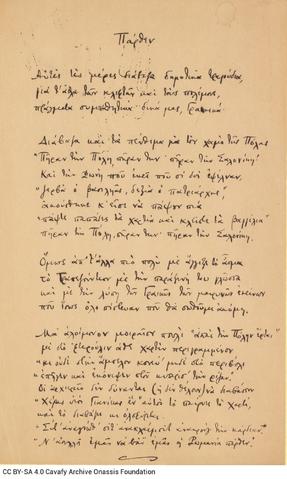 Πάρθεν
Αυτές τες μέρες διάβαζα δημοτικά τραγούδια,
για τ' άθλα των κλεφτών και τους πολέμους,
πράγματα συμπαθητικά· δικά μας, Γραικικά.
Διάβαζα και τα πένθιμα για τον χαμό της Πόλης
"Πήραν την Πόλη, πήραν την· πήραν την Σαλονίκη".
Και την Φωνή που εκεί που οι δυο εψέλναν,
"ζερβά ο βασιληάς, δεξιά ο πατριάρχης",
ακούσθηκε κ' είπε να πάψουν πια
"πάψτε παπάδες τα χαρτιά και κλείστε τα βαγγέλια"
πήραν την Πόλη, πήραν την· πήραν την Σαλονίκη.
Όμως απ' τ' άλλα πιο πολύ με άγγιξε το άσμα
το Τραπεζούντιον με την παράξενή του γλώσσα
και με την λύπη των Γραικών των μακρυνών εκείνων
που ίσως όλο πίστευαν που θα σωθούμε ακόμη.
Μα αλοίμονον μοιραίον πουλί "απαί την Πόλην έρται"
με στο "φτερούλιν αθε χαρτίν περιγραμμένον
κι ουδέ στην άμπελον κονεύ' μηδέ στο περιβόλι
επήγεν και εκόνεψεν στου κυπαρίσ' την ρίζαν".
Οι αρχιερείς δεν δύνανται (ή δεν θέλουν) να διαβάσουν
"Χέρας υιός Γιανίκας έν" αυτός το παίρνει το χαρτί,
και το διαβάζει κι ολοφύρεται.
"Σίτ' αναγνώθ' σίτ' ανακλαίγ' σίτ' ανακρούγ' την κάρδιαν.
"Ν' αοιλλή εμάς να βάι εμάς η Ρωμανία πάρθεν."
CC BY-SA 4.0 Cavafy Archive Onassis Foundation